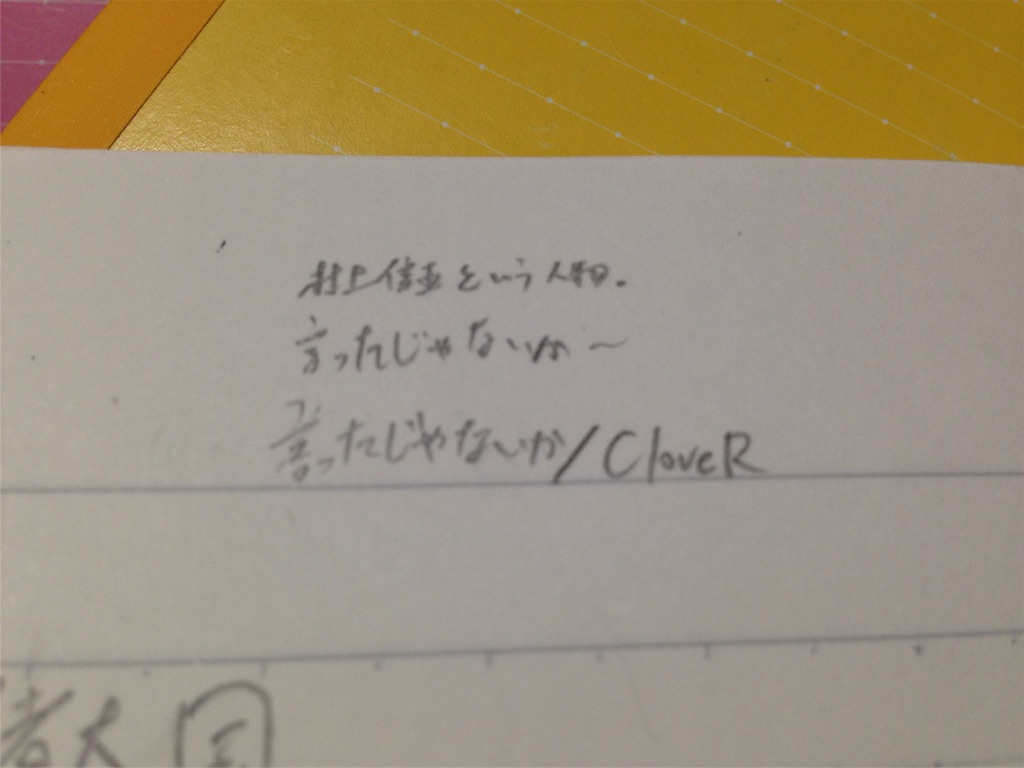 村上信五という人物.
言ったじゃないか〜
言ったじゃないか/CloveR
者大国